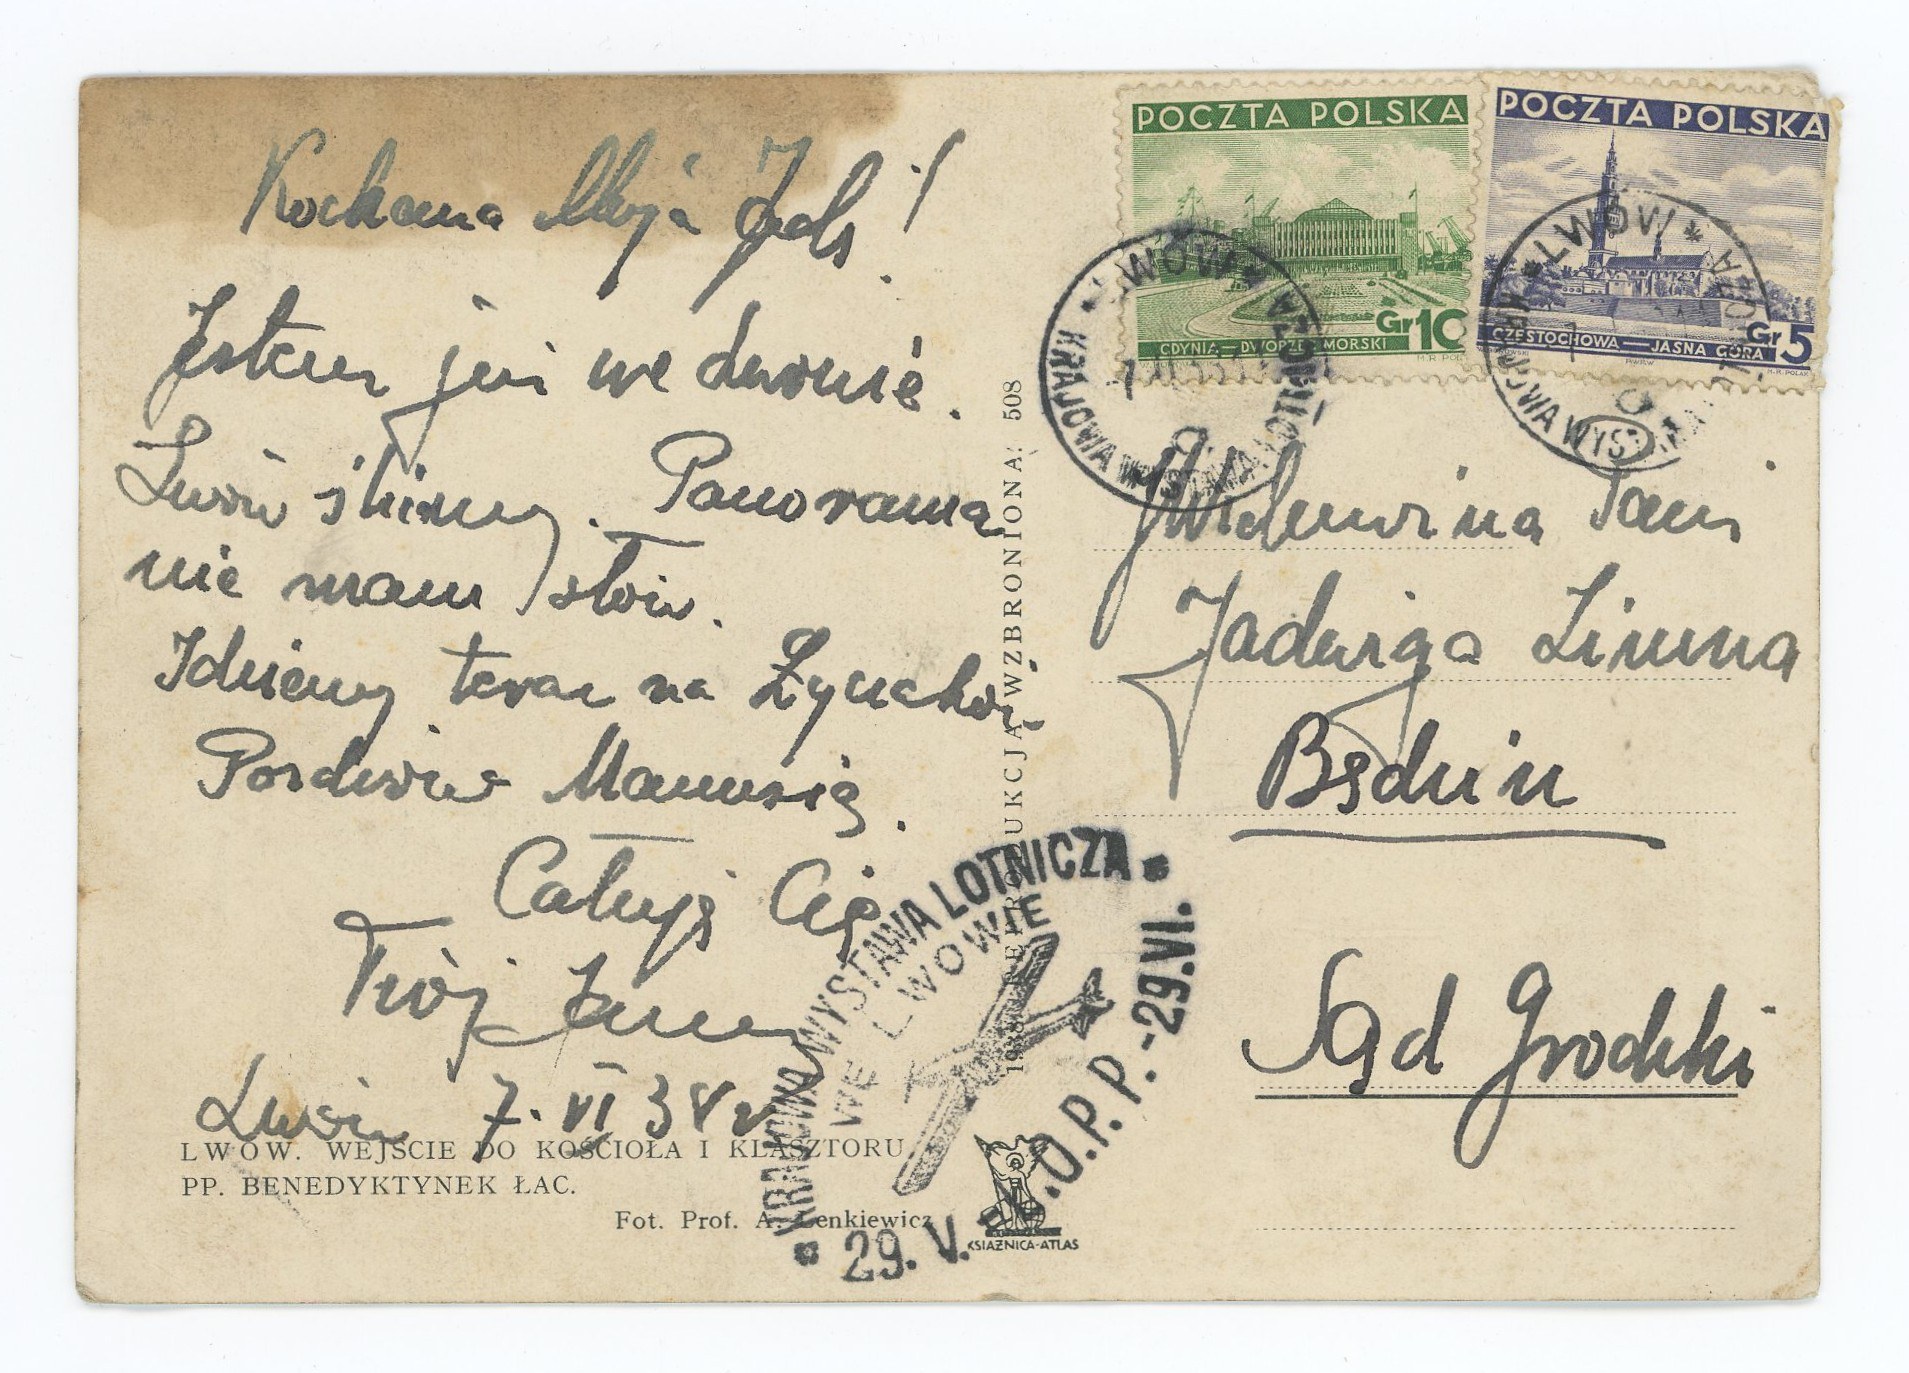 POCZTA POLSKA
GDYNIA — DWORZEC MORSKI
Gr 10
POCZTA POLSKA
CZĘSTOCHOWA — JASNA GÓRA
Gr 5
* LWÓW * KRAJOWA WYSTAWA LOTNICZA
* LWÓW * KRAJOWA WYSTAWA LOTNICZA
Kochana Moja
Jestem już we Lwowie.
Lwów śliczny. Panorama
nie mam słów.
Idziemy teraz na
Pozdrów Mamusię.
Całuję Cię
Twój
Lwów 7. VI 38 r
Wielmożna Pani
Jadwiga Limma
Będzin
Sąd Grodzki
1938. REPRODUKCJA WZBRONIONA: 508
* KRAJOWA WYSTAWA LOTNICZA *
WE LWOWIE
29. V. - L.O.P.P. - 29. VI.
LWÓW. WEJŚCIE DO KOŚCIOŁA I KLASZTORU
PP. BENEDYKTYNEK ŁAC.
Fot. Prof. A. Lenkiewicz
KSIĄŻNICA-ATLAS